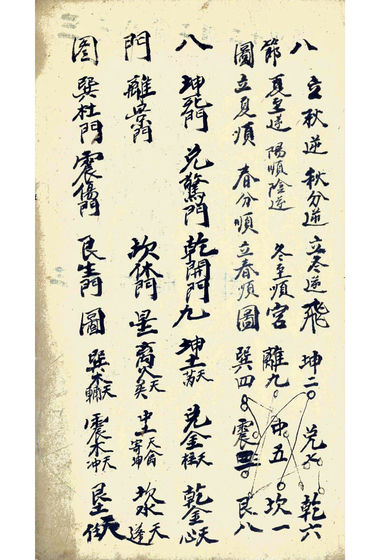 八 立秋逆 秋分逆 立冬逆 飛 坤二 兌七 乾六
節 夏至逆 陽順陰逆 冬至順 宮 離九 中五 坎一
圖 立夏順 春分順 立春順 圖 巽四 震三 艮八
八 坤死門 兌驚門 乾開門 九 坤土天芮 兌金天柱 乾金天心
門 離景門 坎休門 星 离火天英 中土天禽寄坤 坎水天蓬
图 巽杜門 震傷門 艮生門 圖 巽木天輔 震木天冲 艮土天任